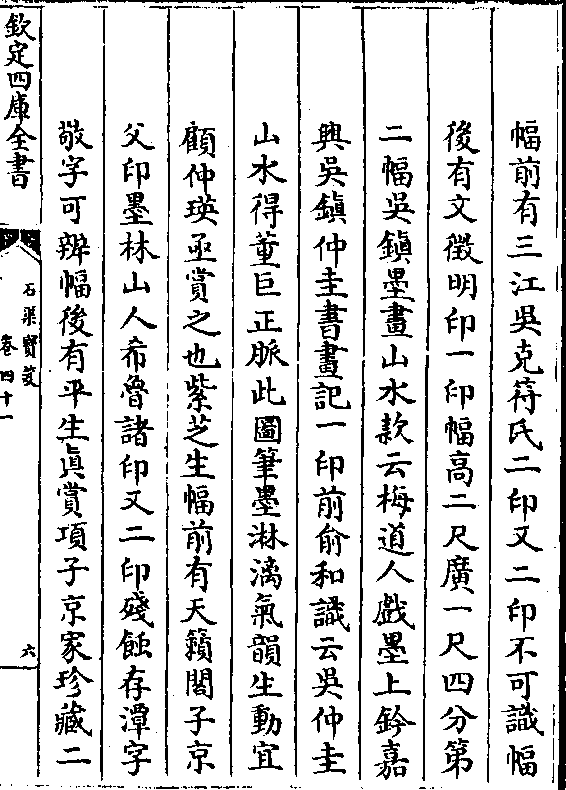 幅前有三江吳克符氏二印又二印不可識幅
後有文徵明印一印幅高二尺廣一尺四分第
二幅吳鎮墨畫山水款云梅道人戲墨上鈐嘉
興吳鎮仲圭書畫記一印前俞和識云吳仲圭
山水得董巨正脈此圖筆墨淋漓氣韻生動宜
顧仲瑛亟賞之也紫芝生幅前有天籟閣子京
父印墨林山人希魯諸印又二印殘蝕存潭字
敬字可辨幅後有平生真賞項子京家珍藏二
欽定四庫全書
石渠寶笈
卷四十一
六